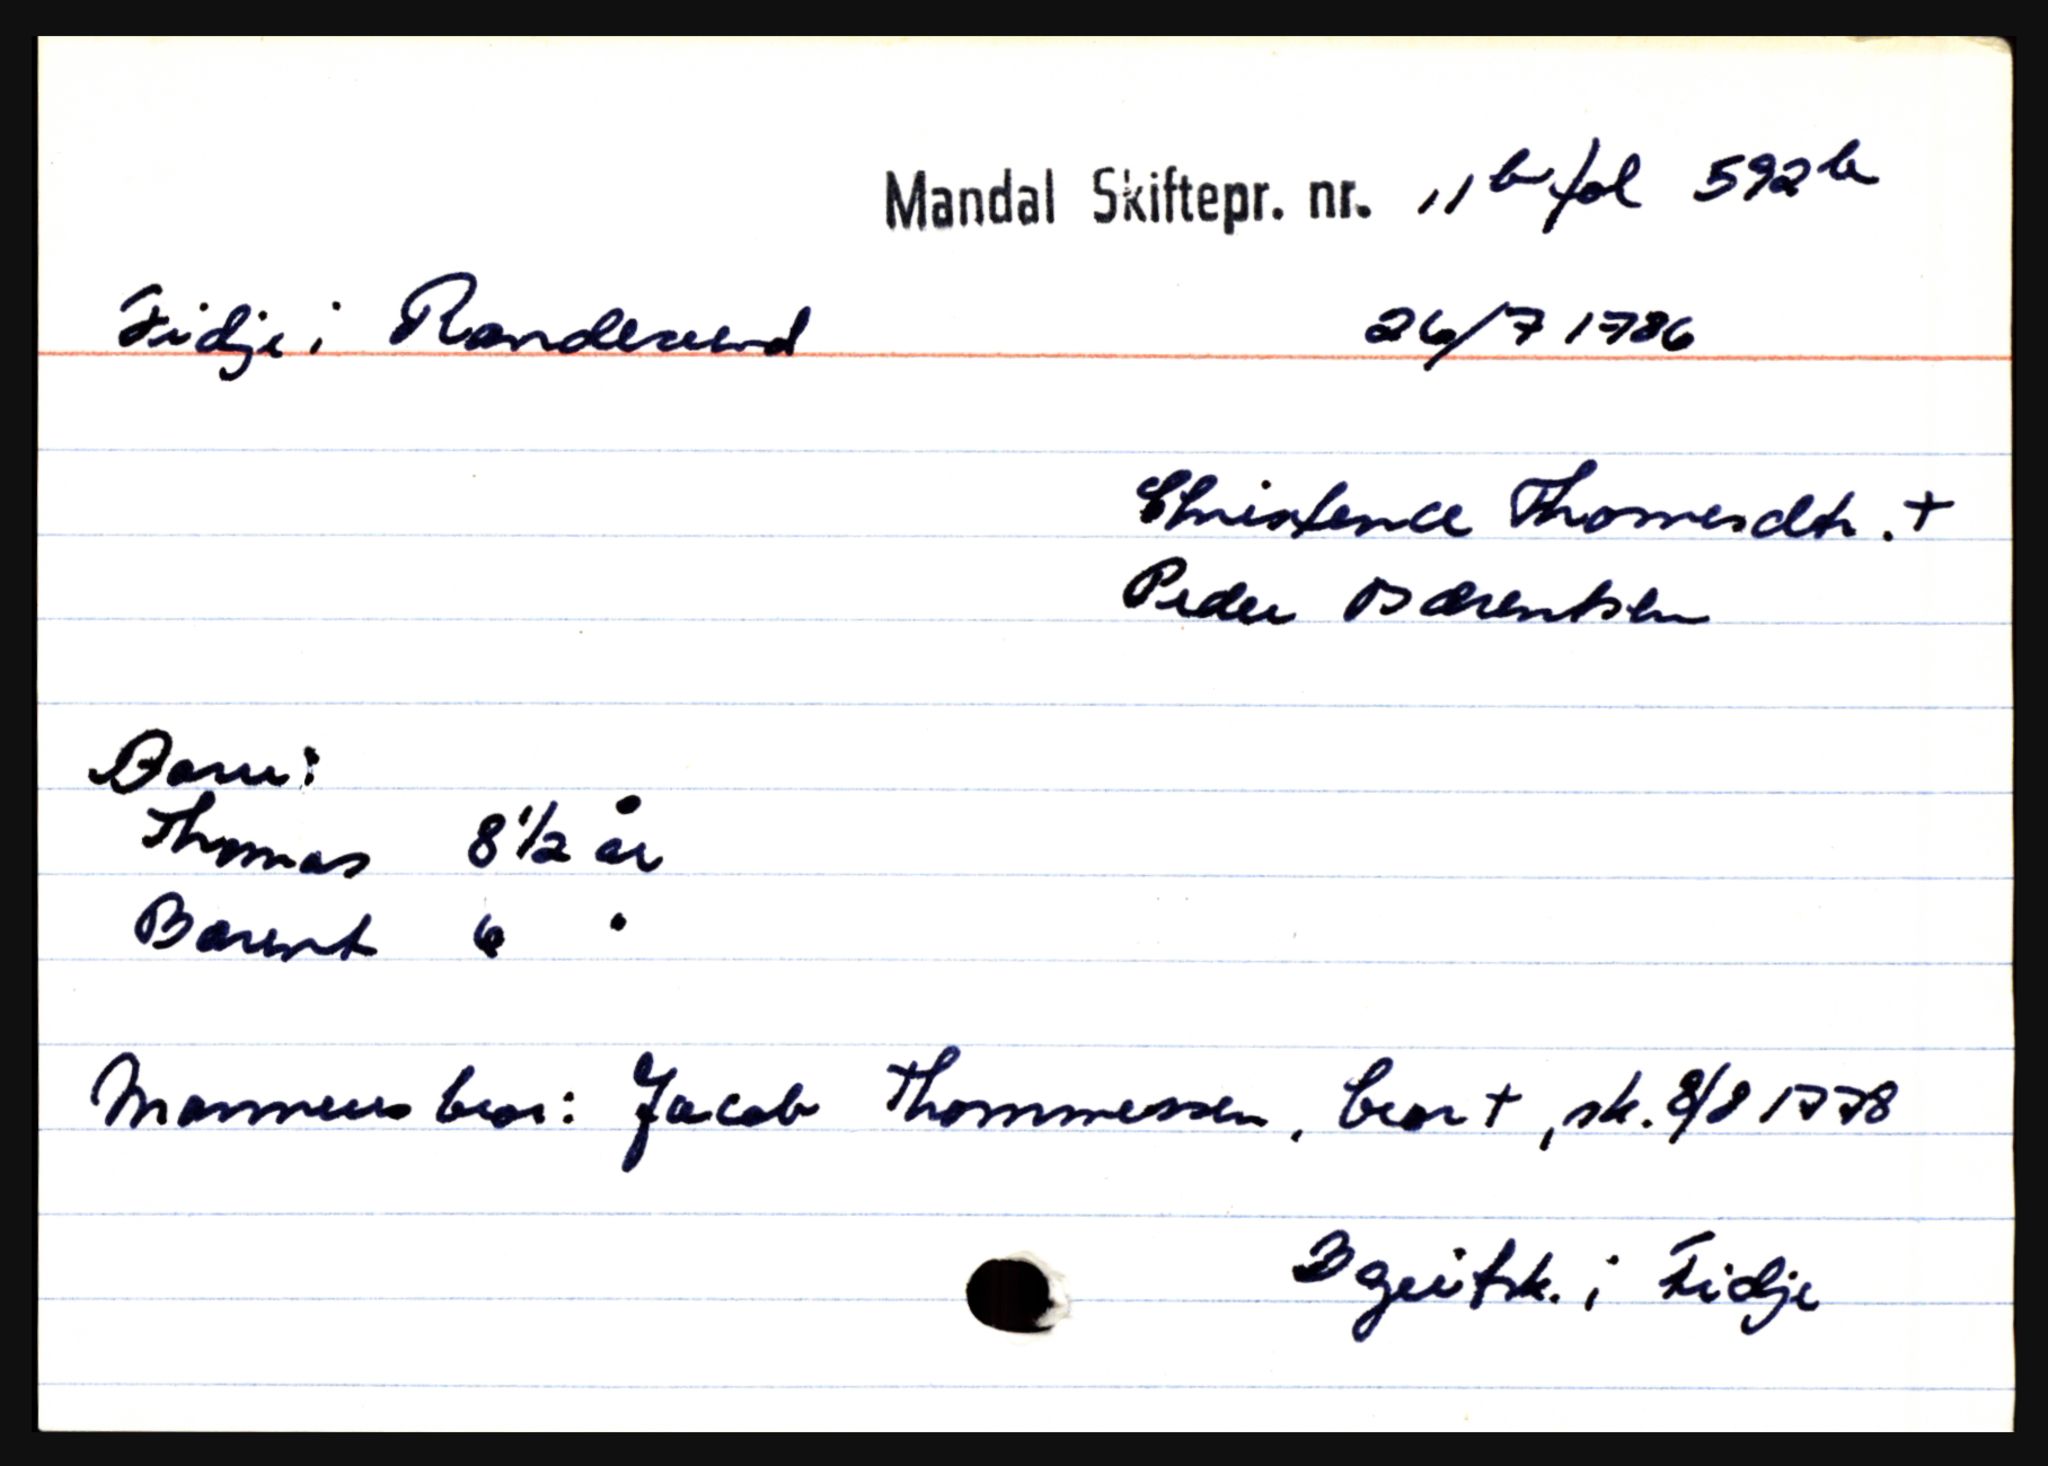 Mandal Skiftepr. nr. 11b fol 592b
Fidje i Randesund 26/7 1786
Christence Thomesdtr. +
Peder Bærentsen
Barn:
Thomas 8 1/2 år
Bærent 6 "
Mannens bror: Jacob Thommessen, bror +, sk. 8/8 1778
Bgeitsk. i Fidje